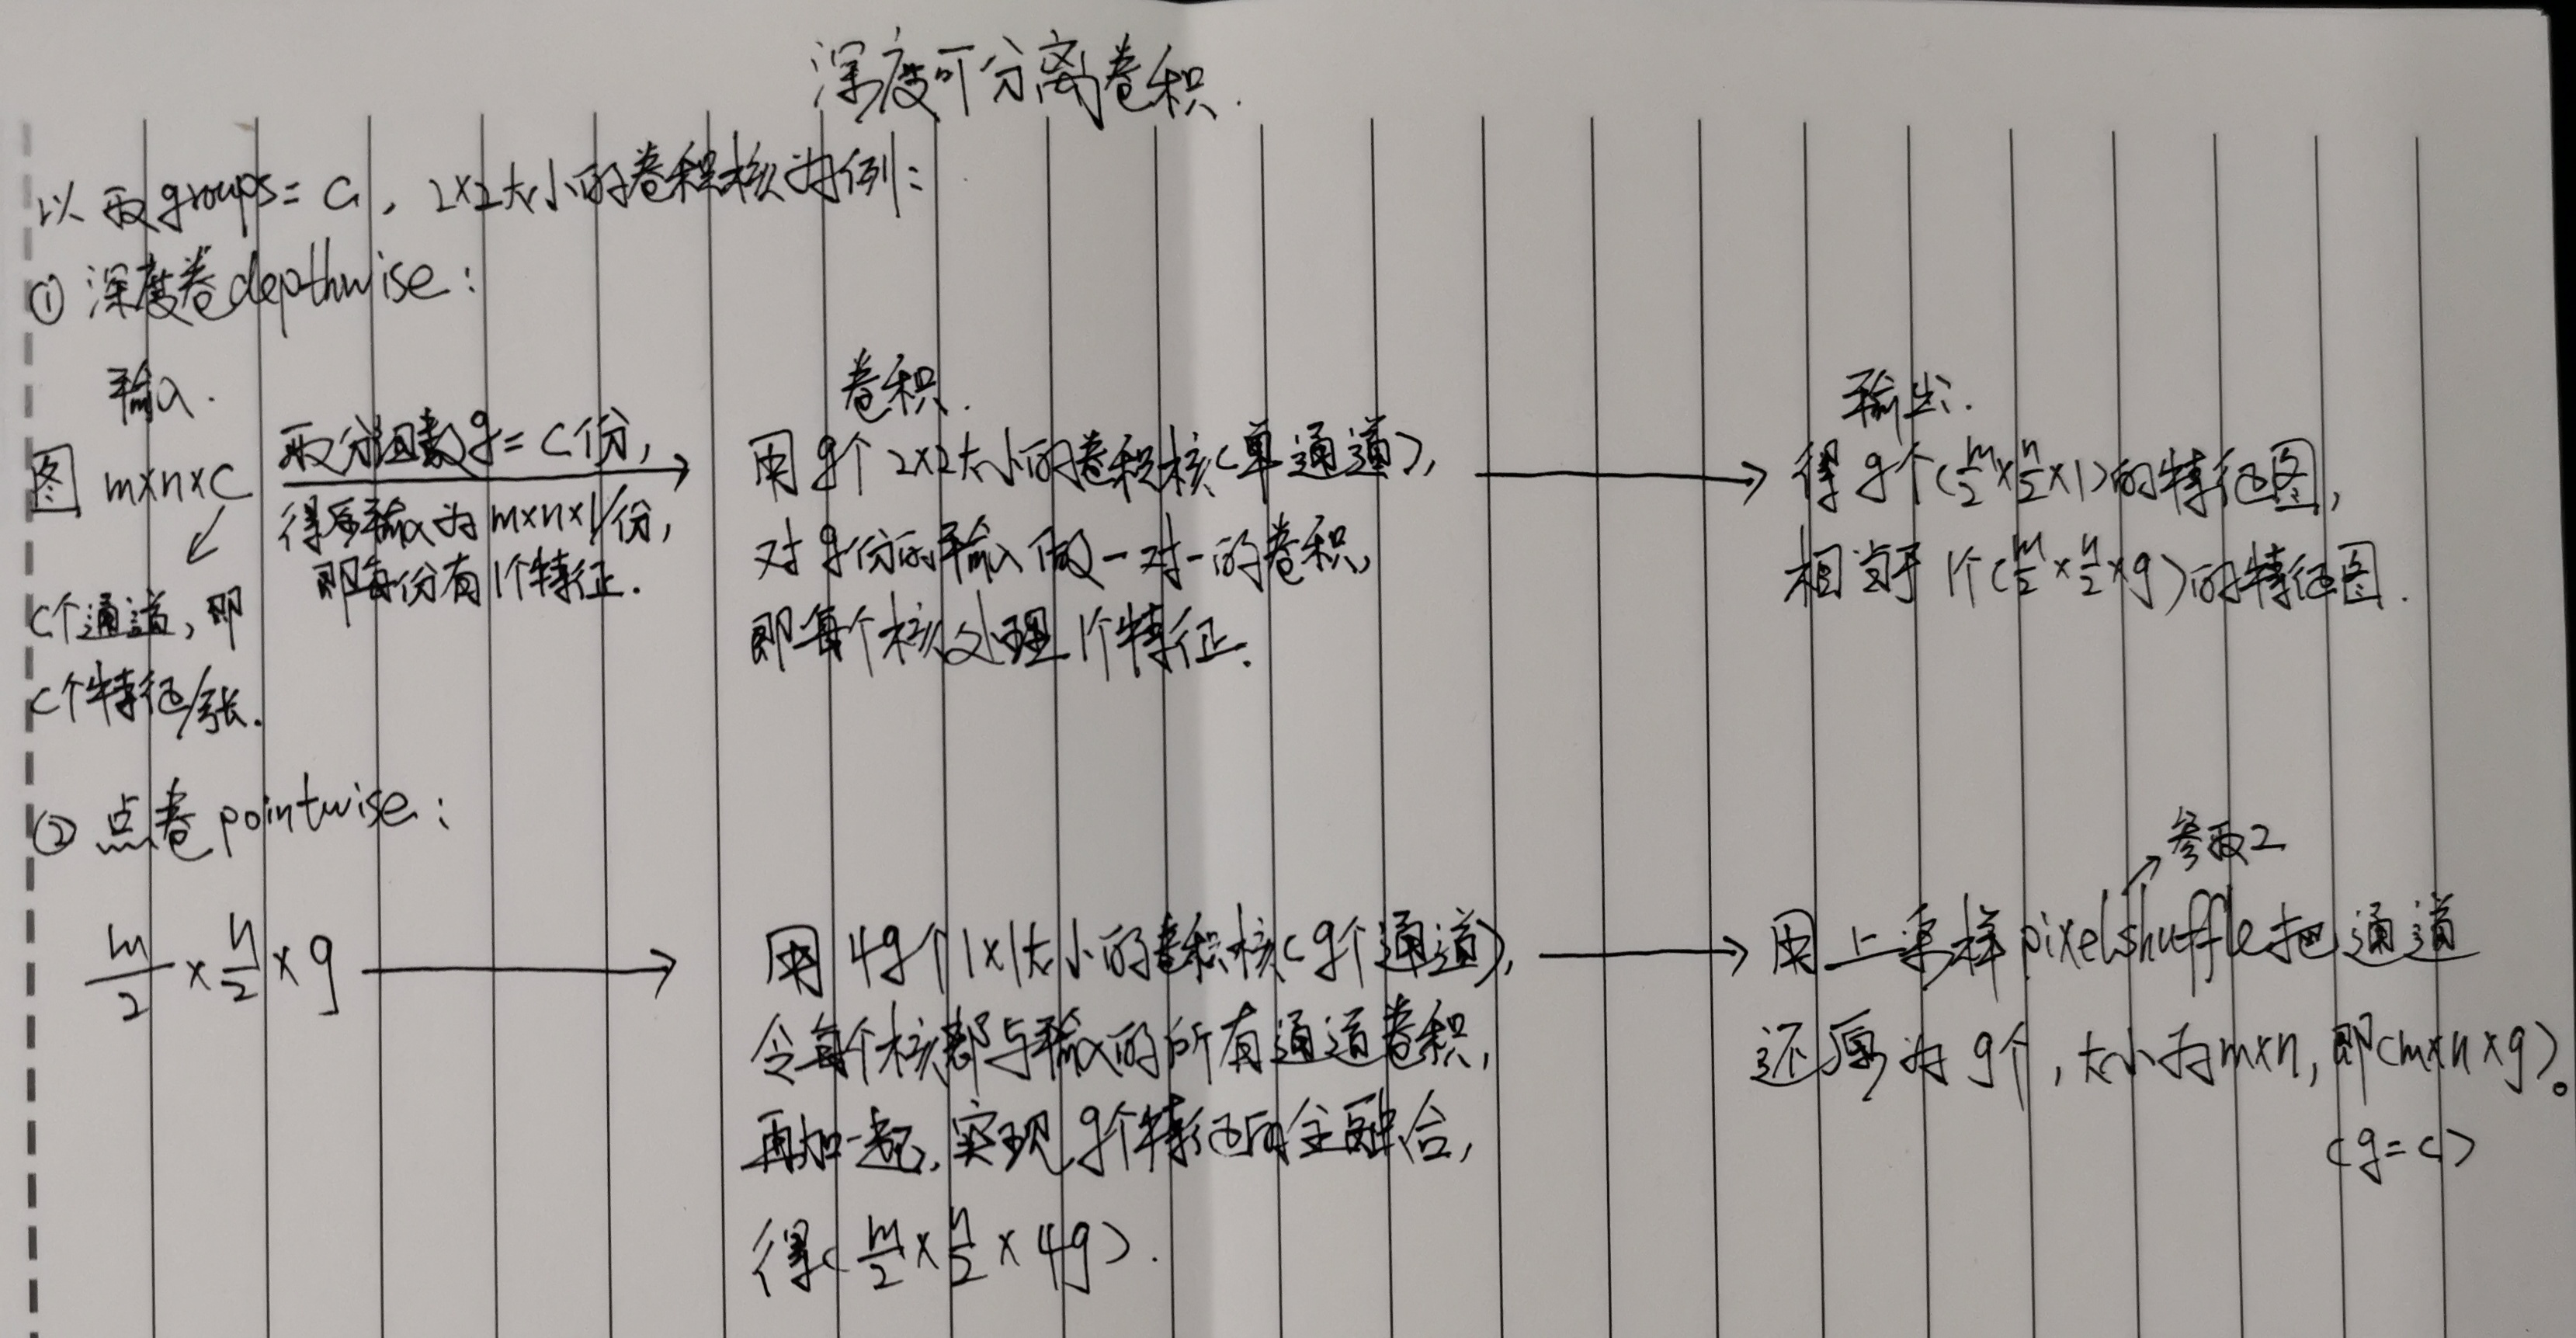 深度可分离卷积.
以取groups=C, 2×2大小的卷积核为例:
① 深度卷depthwise:
输入.
图 m×n×C
C个通道, 即
C个特征/张.
取分组数g=C份,
得每输入为m×n×1/份,
即每份有1个特征.
卷积.
用g个2×2大小的卷积核(单通道),
对g份的输入做一对一的卷积,
即每个核处理1个特征.
输出.
得g个(m/2×n/2×1)的特征图,
相当于1个(m/2×n/2×g)的特征图.
② 点卷pointwise:
m/2×n/2×g
用4g个1×1大小的卷积核(g个通道),
令每个核都与输入的所有通道卷积,
再加一起, 实现g个特征的全融合,
得(m/2×n/2×4g).
参取2
用上采样pixelshuffle把通道
还原为g个, 大小为m×n, 即(m×n×g)。
(g=C)